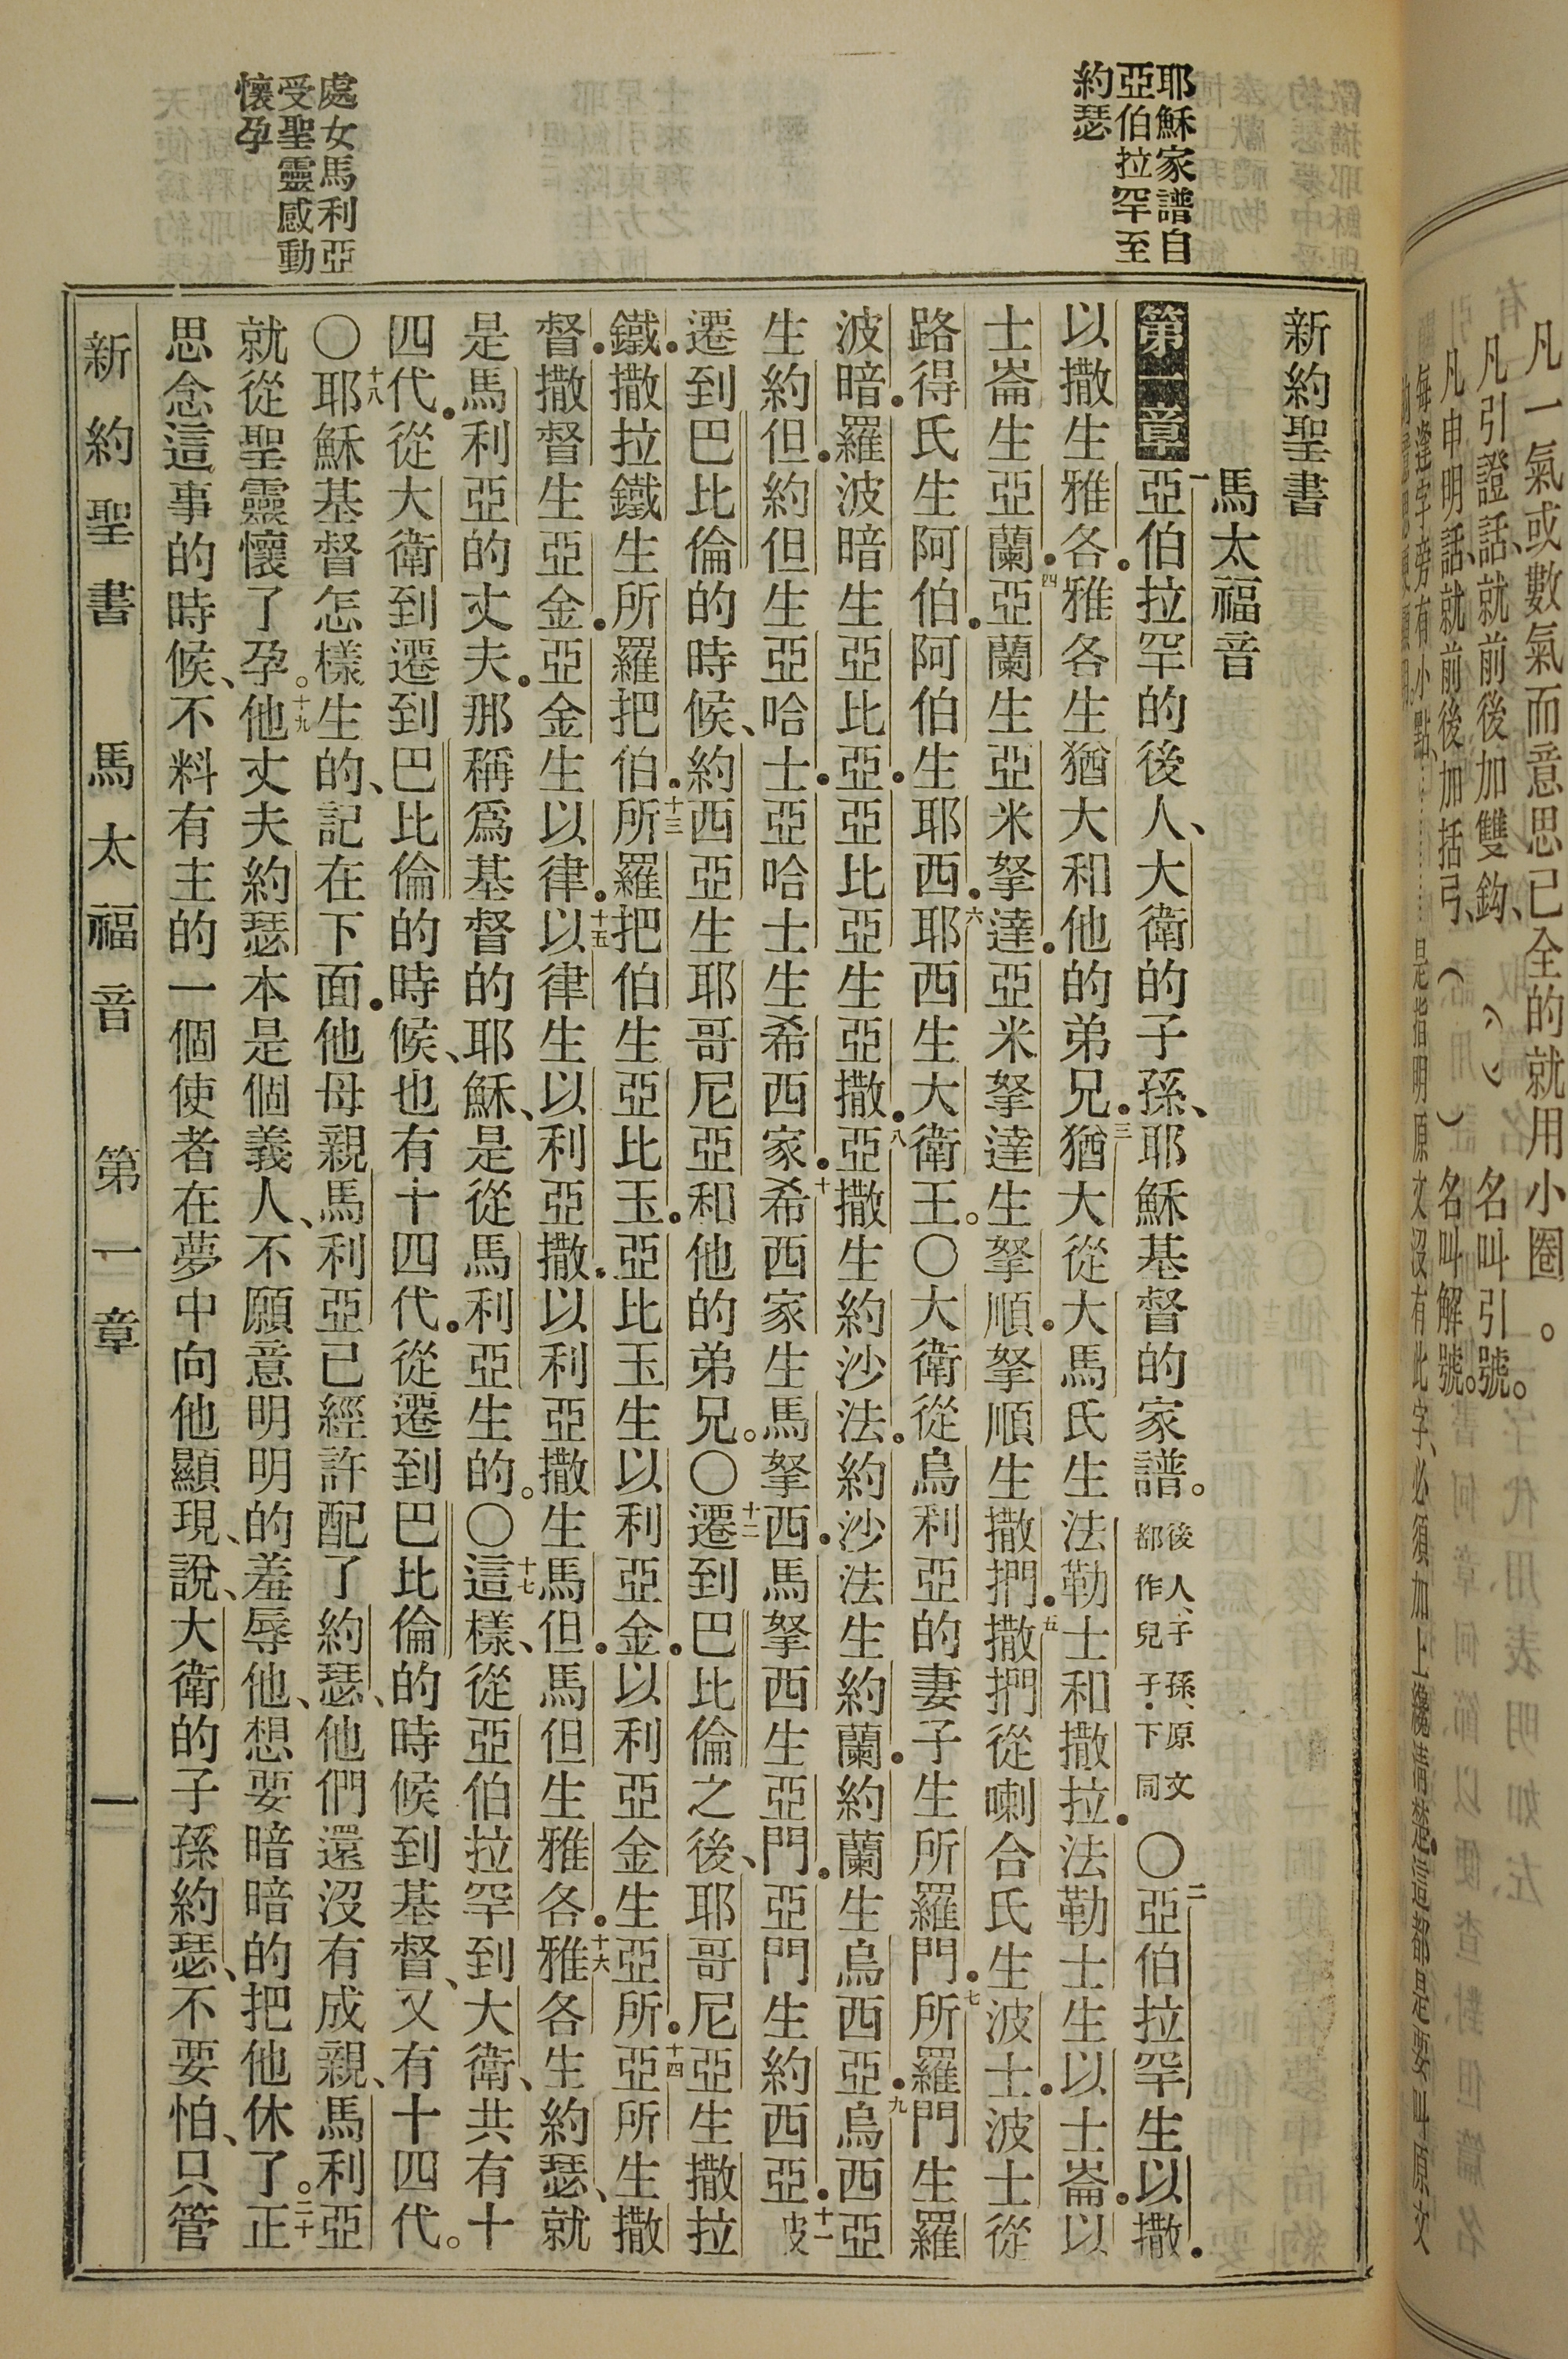 凡一氣或數氣而意思已全的就用小圈 。
凡引證話、就前後加雙鈎、 名叫引號。
凡申明話、就前後加括弓、（ ）名叫解號。
每逢字旁有小點、………是指明原文沒有此字、必須加上纔淸楚．這都是要叫原文
耶穌家譜自
亞伯拉罕至
約瑟
處女馬利亞
受聖靈感動
懷孕
新約聖書
馬太福音
第一章 一亞伯拉罕的後人、大衛的子孫、耶穌基督的家譜。後人、子孫、原文都作兒子．下同 〇二亞伯拉罕生以撒．
以撒生雅各．雅各生猶大和他的弟兄．三猶大從大馬氏生法勒士和撒拉．法勒士生以士崙．以
士崙生亞蘭．四亞蘭生亞米拏達．亞米拏達生拏順．拏順生撒捫．五撒捫從喇合氏生波士．波士從
路得氏生阿伯．阿伯生耶西．六耶西生大衛王。〇大衛從烏利亞的妻子生所羅門．七所羅門生羅
波暗．羅波暗生亞比亞．亞比亞生亞撒．八亞撒生約沙法．約沙法生約蘭．約蘭生烏西亞．九烏西亞
生約但．約但生亞哈士．亞哈士生希西家．十希西家生馬拏西．馬拏西生亞門．亞門生約西亞．十一
遷到巴比倫的時候、約西亞生耶哥尼亞和他的弟兄。〇十二遷到巴比倫之後、耶哥尼亞生撒拉
鐵．撒拉鐵生所羅把伯．十三所羅把伯生亞比玉．亞比玉生以利亞金．以利亞金生亞所．十四亞所生撒
督．撒督生亞金．亞金生以律．十五以律生以利亞撒．以利亞撒生馬但．馬但生雅各．十六雅各生約瑟、就
是馬利亞的丈夫．那稱爲基督的耶穌、是從馬利亞生的。〇十七這樣、從亞伯拉罕到大衛、共有十
四代．從大衛到遷到巴比倫的時候、也有十四代．從遷到巴比倫的時候到基督、又有十四代。
〇十八耶穌基督怎樣生的、記在下面．他母親馬利亞已經許配了約瑟、他們還沒有成親、馬利亞
就從聖靈懷了孕。十九他丈夫約瑟本是個義人、不願意明明的羞辱他、想要暗暗的把他休了。二十正
思念這事的時候、不料有主的一個使者在夢中向他顯現、說、大衛的子孫約瑟、不要怕、只管
新約聖書 馬太福音 第一章 一